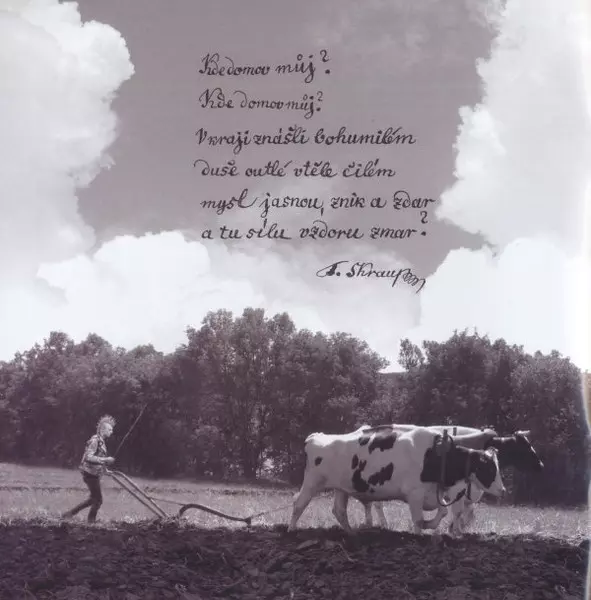 Kde domov můj?
Kde domov můj?
V kraji znášli bohumilém
duše outlé vtěle čilém
mysl jasnou, znik a zdar
a tu sílu vzdoru zmar?
F. Skraup